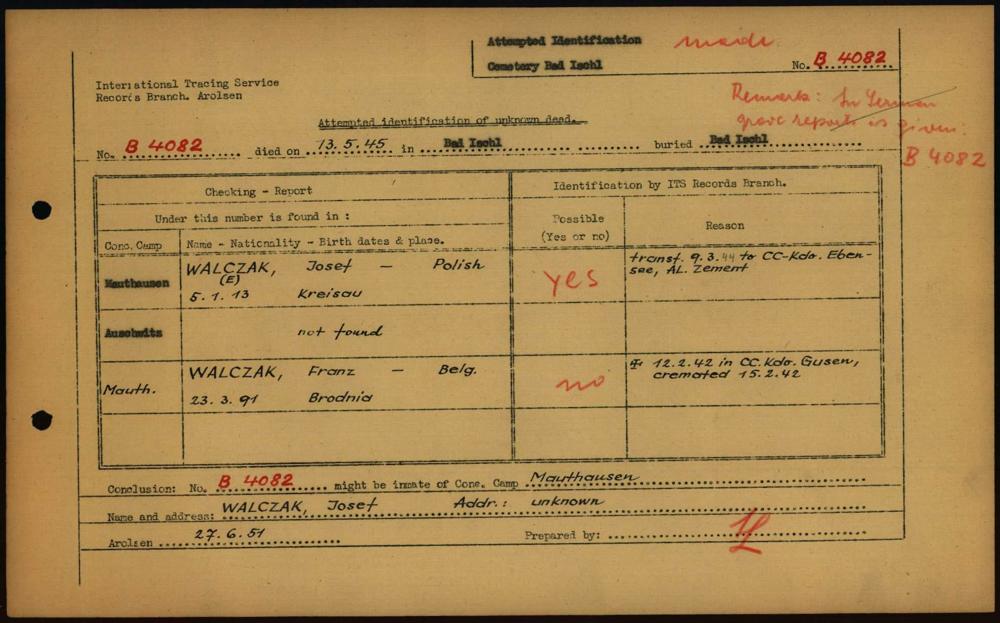 Attempted Identification made
Cemetery Bad Ischl
No. B 4082
International Tracing Service
Records Branch. Arolsen
Remark: In German
grave reports as given:
B 4082
Attempted identification of unknown dead.
No. B 4082 died on 13.5.45 in Bad Ischl buried Bad Ischl
Checking - Report
Identification by ITS Records Branch.
Under this number is found in :
Possible
(Yes or no)
Reason
Conc. Camp
Name - Nationality - Birth dates & place.
Mauthausen
WALCZAK, Josef — Polish
(E)
5. 1. 13 Kreisau
yes
transf. 9.3.44 to CC-Kdo. Eben-
see, AL. Zement
Auschwitz
not found
Mauth.
WALCZAK, Franz — Belg.
23. 3. 91 Brodnia
no
✠ 12.2.42 in CC.Kdo. Gusen,
cremated 15.2.42
Conclusion: No. B 4082 might be inmate of Conc. Camp Mauthausen
Name and address: WALCZAK, Josef Addr.: unknown
Arolsen 27.6.51 Prepared by: